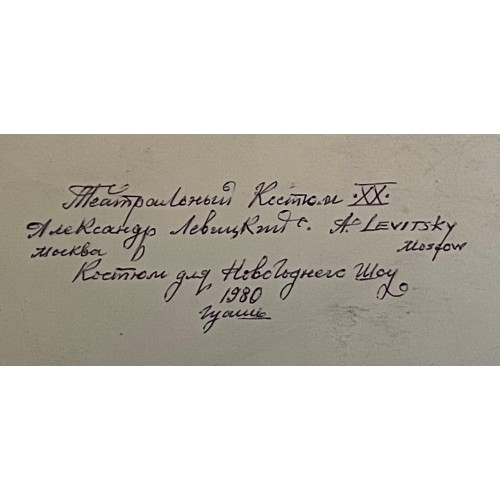 Театральный Костюм ·XX·
Александр Левицкий с. A. LEVITSKY
Москва Moscow
Костюм для Новогоднего Шоу
1980
гуашь